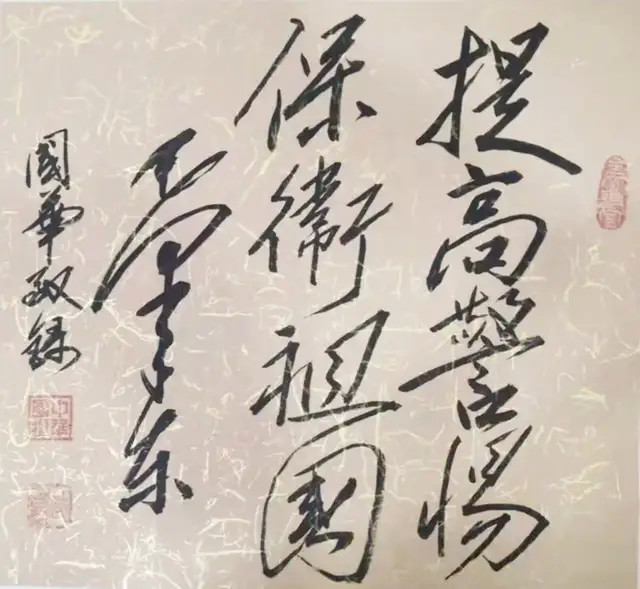 提高警惕
保衛祖國
毛泽东
國華敬録